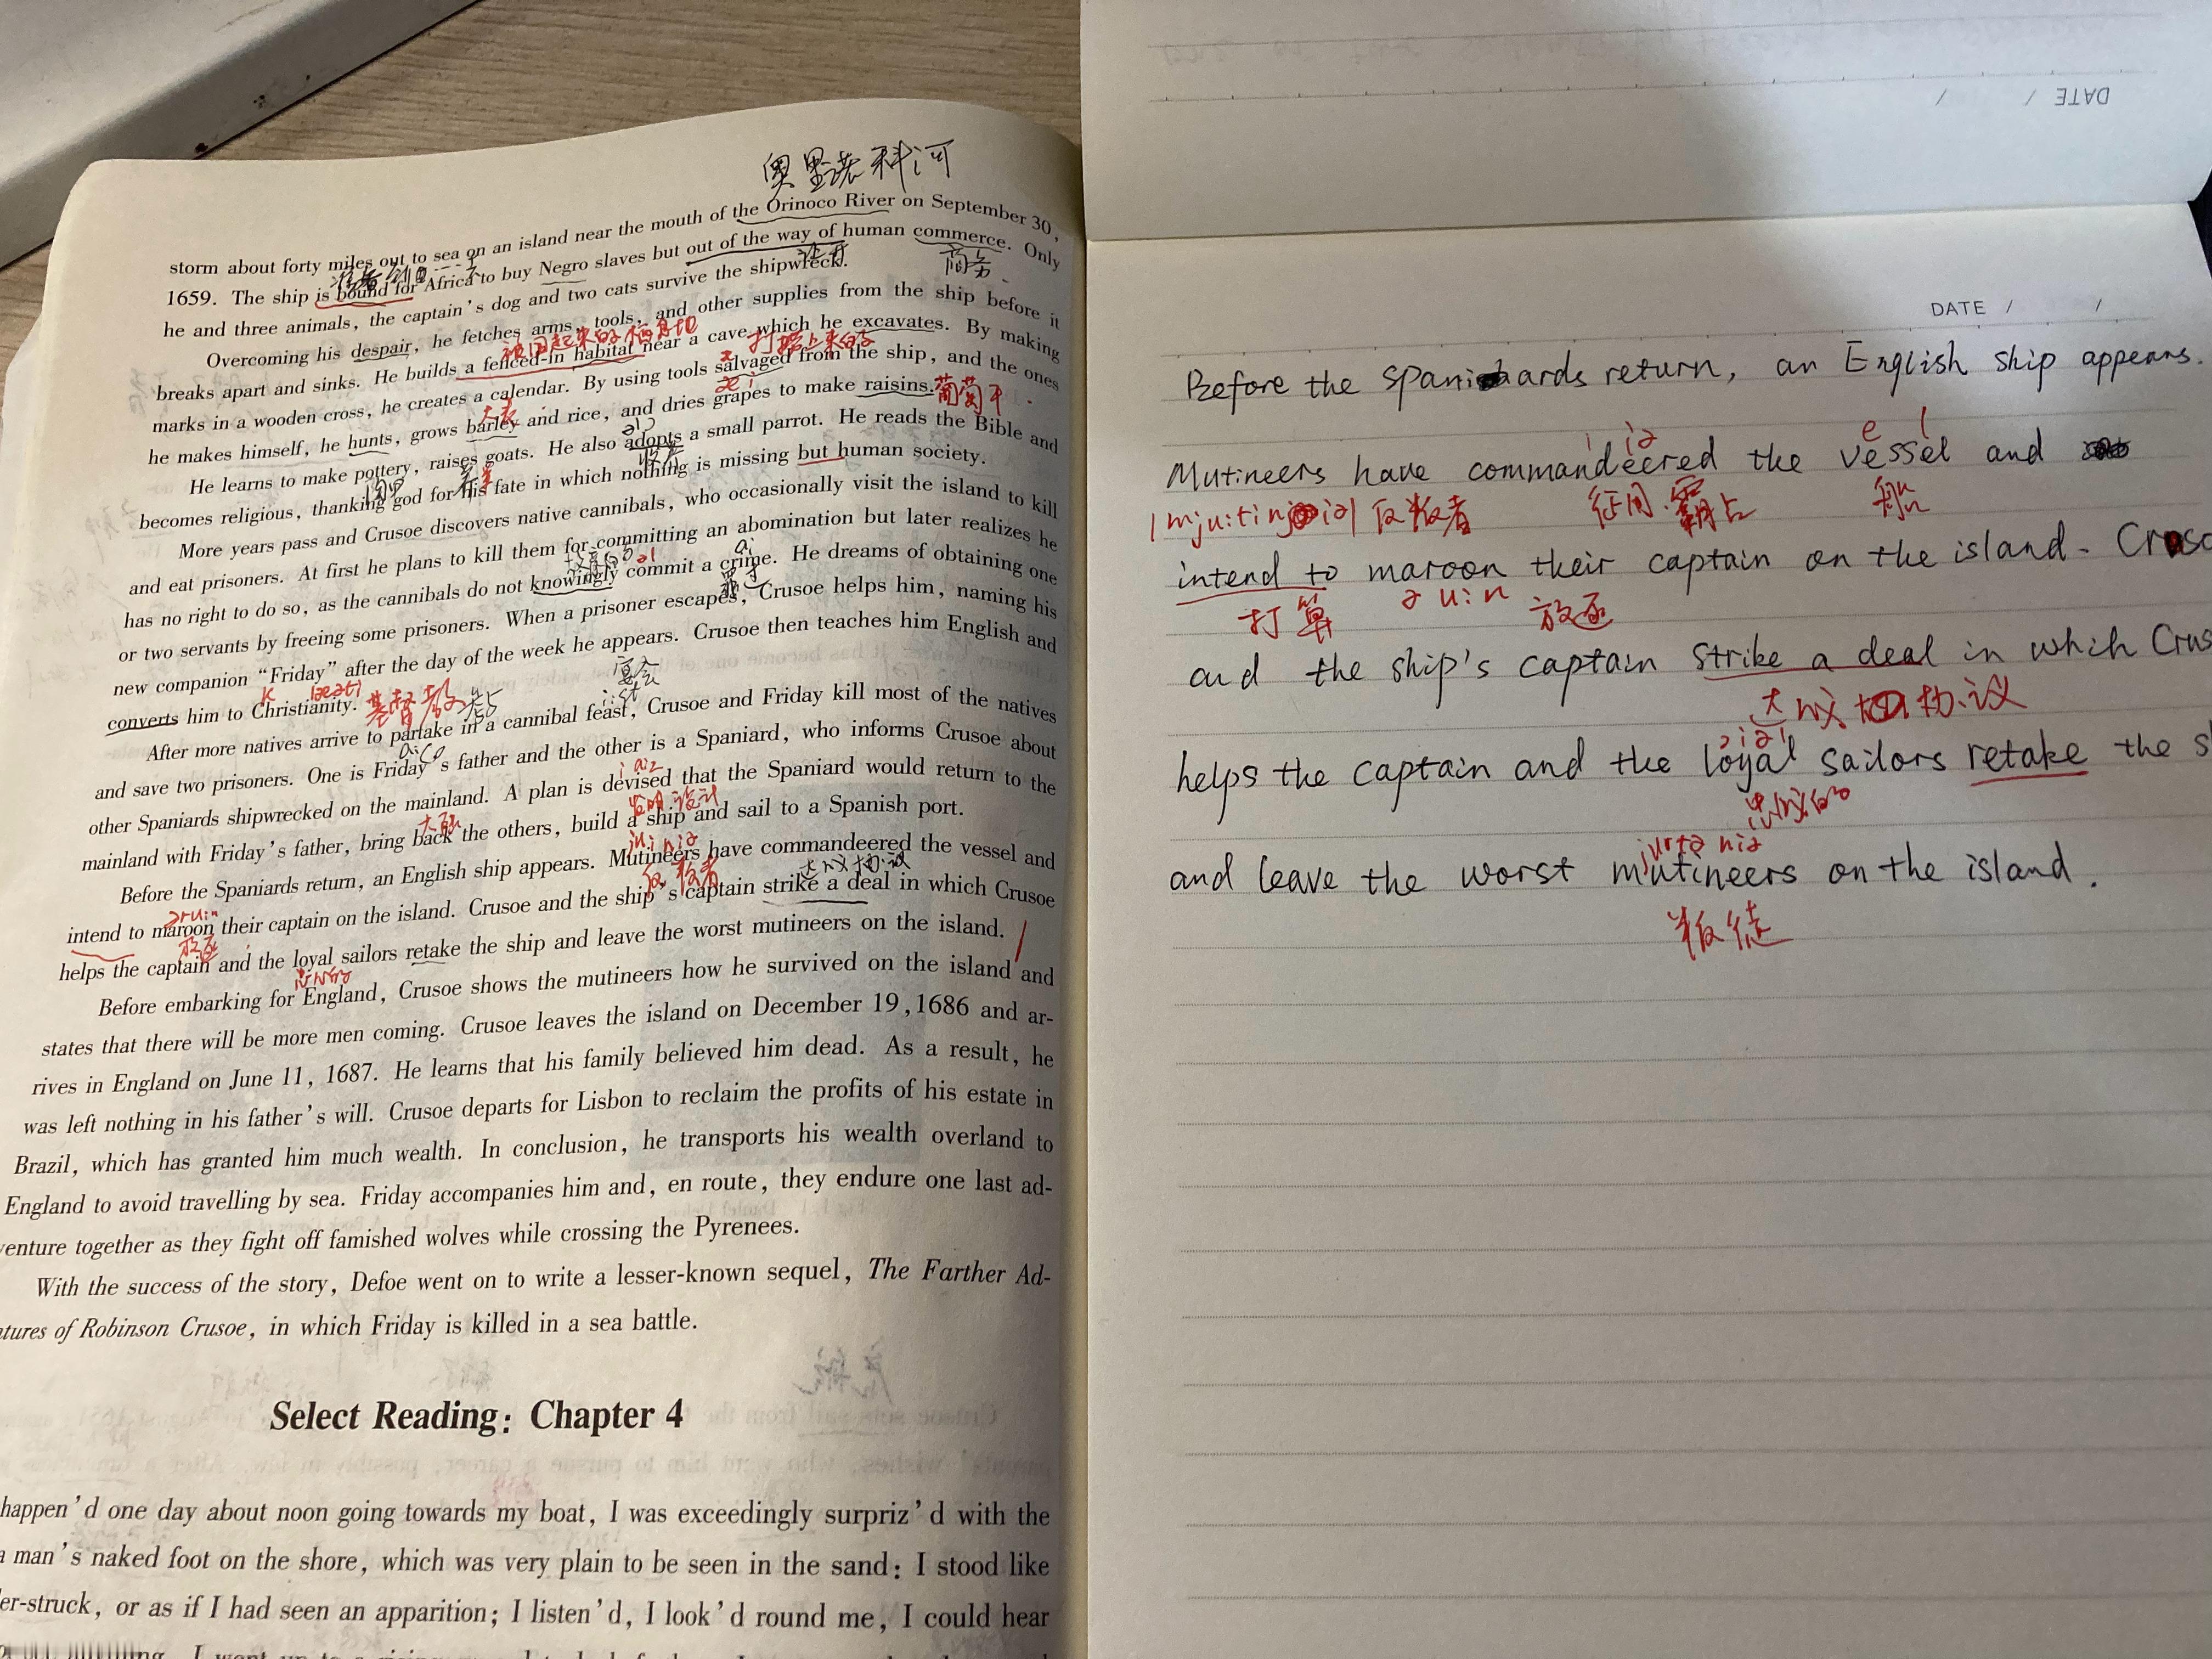 奥里诺科河
storm about forty miles out to sea on an island near the mouth of the Orinoco River on September 30,
1659. The ship is bound for Africa to buy Negro slaves but out of the way of human commerce. Only
商务
he and three animals, the captain's dog and two cats survive the shipwreck.
Overcoming his despair, he fetches arms, tools, and other supplies from the ship before it
被围起来的栖息地
打捞上来的
breaks apart and sinks. He builds a fenced-in habitat near a cave which he excavates. By making
marks in a wooden cross, he creates a calendar. By using tools salvaged from the ship, and the ones
大麦
he makes himself, he hunts, grows barley and rice, and dries grapes to make raisins. 葡萄干
He learns to make pottery, raises goats. He also adopts a small parrot. He reads the Bible and
收养
becomes religious, thanking god for his fate in which nothing is missing but human society.
More years pass and Crusoe discovers native cannibals, who occasionally visit the island to kill
and eat prisoners. At first he plans to kill them for committing an abomination but later realizes he
has no right to do so, as the cannibals do not knowingly commit a crime. He dreams of obtaining one
or two servants by freeing some prisoners. When a prisoner escapes, Crusoe helps him, naming his
new companion "Friday" after the day of the week he appears. Crusoe then teaches him English and
宴会
converts him to Christianity. 基督教
After more natives arrive to partake in a cannibal feast, Crusoe and Friday kill most of the natives
and save two prisoners. One is Friday's father and the other is a Spaniard, who informs Crusoe about
other Spaniards shipwrecked on the mainland. A plan is devised that the Spaniard would return to the
发明 设计
mainland with Friday's father, bring back the others, build a ship and sail to a Spanish port.
Before the Spaniards return, an English ship appears. Mutineers have commandeered the vessel and
反叛者
达成协议
intend to maroon their captain on the island. Crusoe and the ship's captain strike a deal in which Crusoe
放逐
helps the captain and the loyal sailors retake the ship and leave the worst mutineers on the island.
忠诚的
Before embarking for England, Crusoe shows the mutineers how he survived on the island and
states that there will be more men coming. Crusoe leaves the island on December 19, 1686 and ar-
rives in England on June 11, 1687. He learns that his family believed him dead. As a result, he
was left nothing in his father's will. Crusoe departs for Lisbon to reclaim the profits of his estate in
Brazil, which has granted him much wealth. In conclusion, he transports his wealth overland to
England to avoid travelling by sea. Friday accompanies him and, en route, they endure one last ad-
venture together as they fight off famished wolves while crossing the Pyrenees.
With the success of the story, Defoe went on to write a lesser-known sequel, The Farther Ad-
tures of Robinson Crusoe, in which Friday is killed in a sea battle.
Select Reading: Chapter 4
happen'd one day about noon going towards my boat, I was exceedingly surpriz'd with the
a man's naked foot on the shore, which was very plain to be seen in the sand: I stood like
er-struck, or as if I had seen an apparition; I listen'd, I look'd round me, I could hear
DATE / /
DATE / /
Before the Spaniards return, an English ship appears.
Mutineers have commandeered the vessel and
反叛者 征用 霸占 船
intend to maroon their captain on the island. Cruso
打算 放逐
and the ship's captain strike a deal in which Crus
达成协议
helps the captain and the loyal sailors retake the s
忠诚的
and leave the worst mutineers on the island.
叛徒